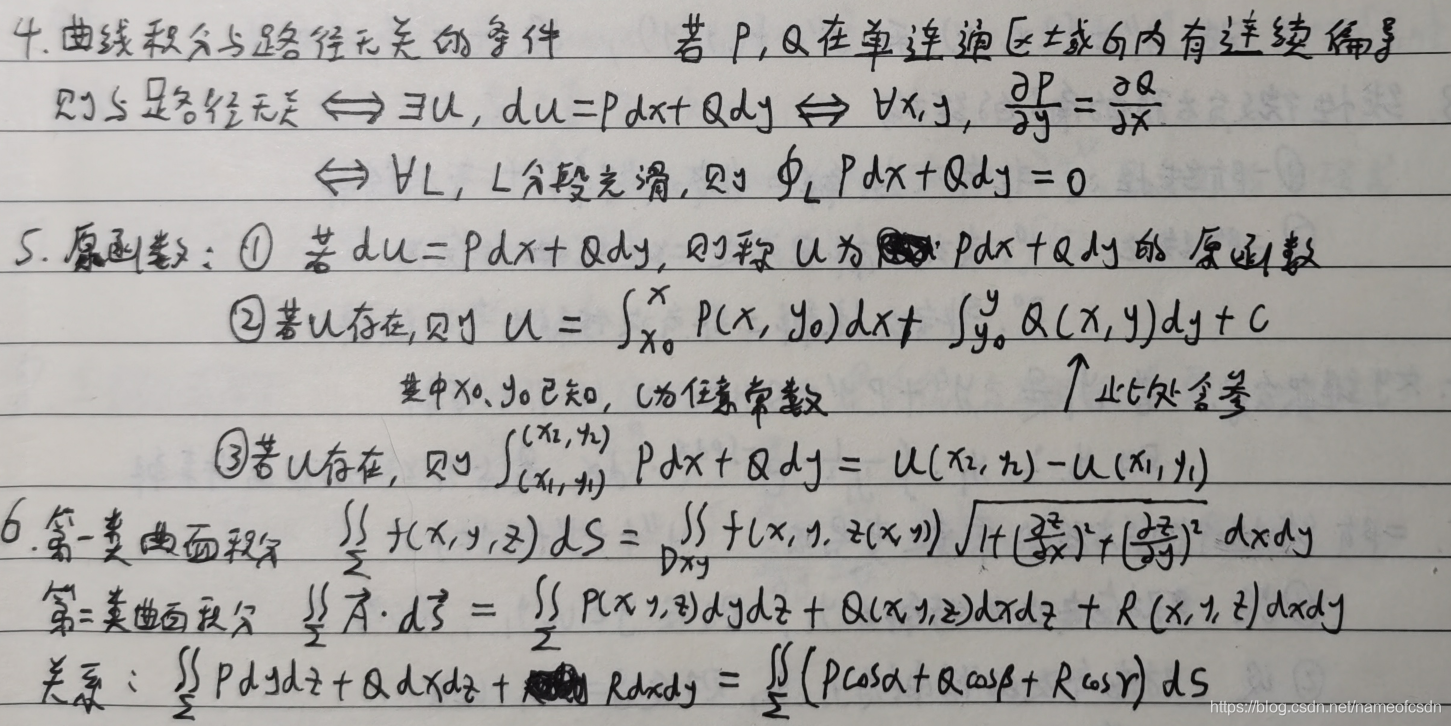 4. 曲线积分与路径无关的条件 若P,Q在单连通区域G内有连续偏导
则与路径无关 ⟺ ∃u, du=Pdx+Qdy ⟺ ∀x,y, ∂P/∂y = ∂Q/∂x
⟺ ∀L, L分段光滑, 则 ∮_L Pdx+Qdy = 0
5. 原函数: ① 若 du=Pdx+Qdy, 则称 u 为 Pdx+Qdy 的 原函数
② 若u存在, 则 u = ∫_{x0}^{x} P(x, y0)dx + ∫_{y0}^{y} Q(x, y)dy + C
其中x0、y0已知, C为任意常数 ↑ 此处含参
③ 若u存在, 则 ∫_{(x1, y1)}^{(x2, y2)} Pdx+Qdy = u(x2, y2) - u(x1, y1)
6. 第一类曲面积分 ∬_Σ f(x, y, z) dS = ∬_{Dxy} f(x, y, z(x,y)) √(1+(∂z/∂x)²+(∂z/∂y)²) dxdy
第二类曲面积分 ∬_Σ A⃗·dS⃗ = ∬_Σ P(x,y,z)dydz + Q(x,y,z)dxdz + R(x,y,z)dxdy
关系: ∬_Σ Pdydz + Qdxdz + Rdxdy = ∬_Σ (Pcosα + Qcosβ + Rcosγ) dS
https://blog.csdn.net/nameofcsdn